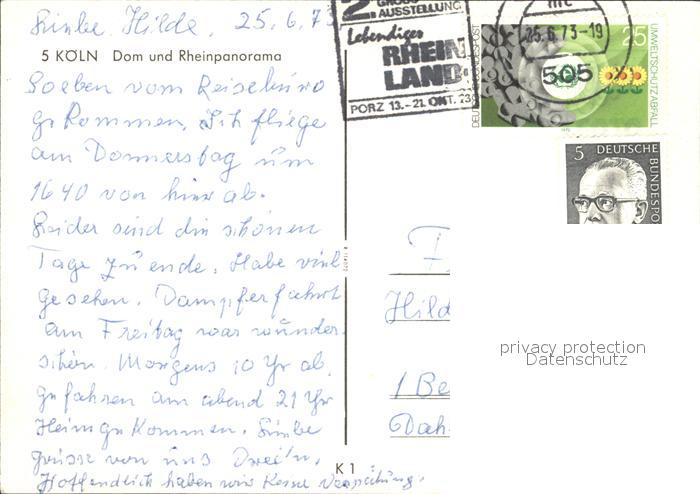 Liebe Hilde, 25.6.73
5 KÖLN Dom und Rheinpanorama
Soeben vom Reisebüro
gekommen. Ich fliege
am Donnerstag um
1640 von hier ab.
Leider sind die schönen
Tage zu ende. Habe viel
gesehen. Dampferfahrt
am Freitag war wunder-
schön. Morgens 10 Uhr ab
gefahren am abend 21 Uhr
Heimgekommen. Liebe
grüsse von uns Drei'n.
Hoffentlich haben wir keine Verspätung.
K 1
2. GROSS
AUSSTELLUNG
Lebendiges
RHEIN
LAND
PORZ 13.-21. OKT. 73
25.6.73-19
505
25
UMWELTSCHUTZ: ABFALL
DEUTSCHE BUNDESPOST
5 DEUTSCHE
BUNDESPO
F
Hild
1 Be
Dah
privacy protection
Datenschutz